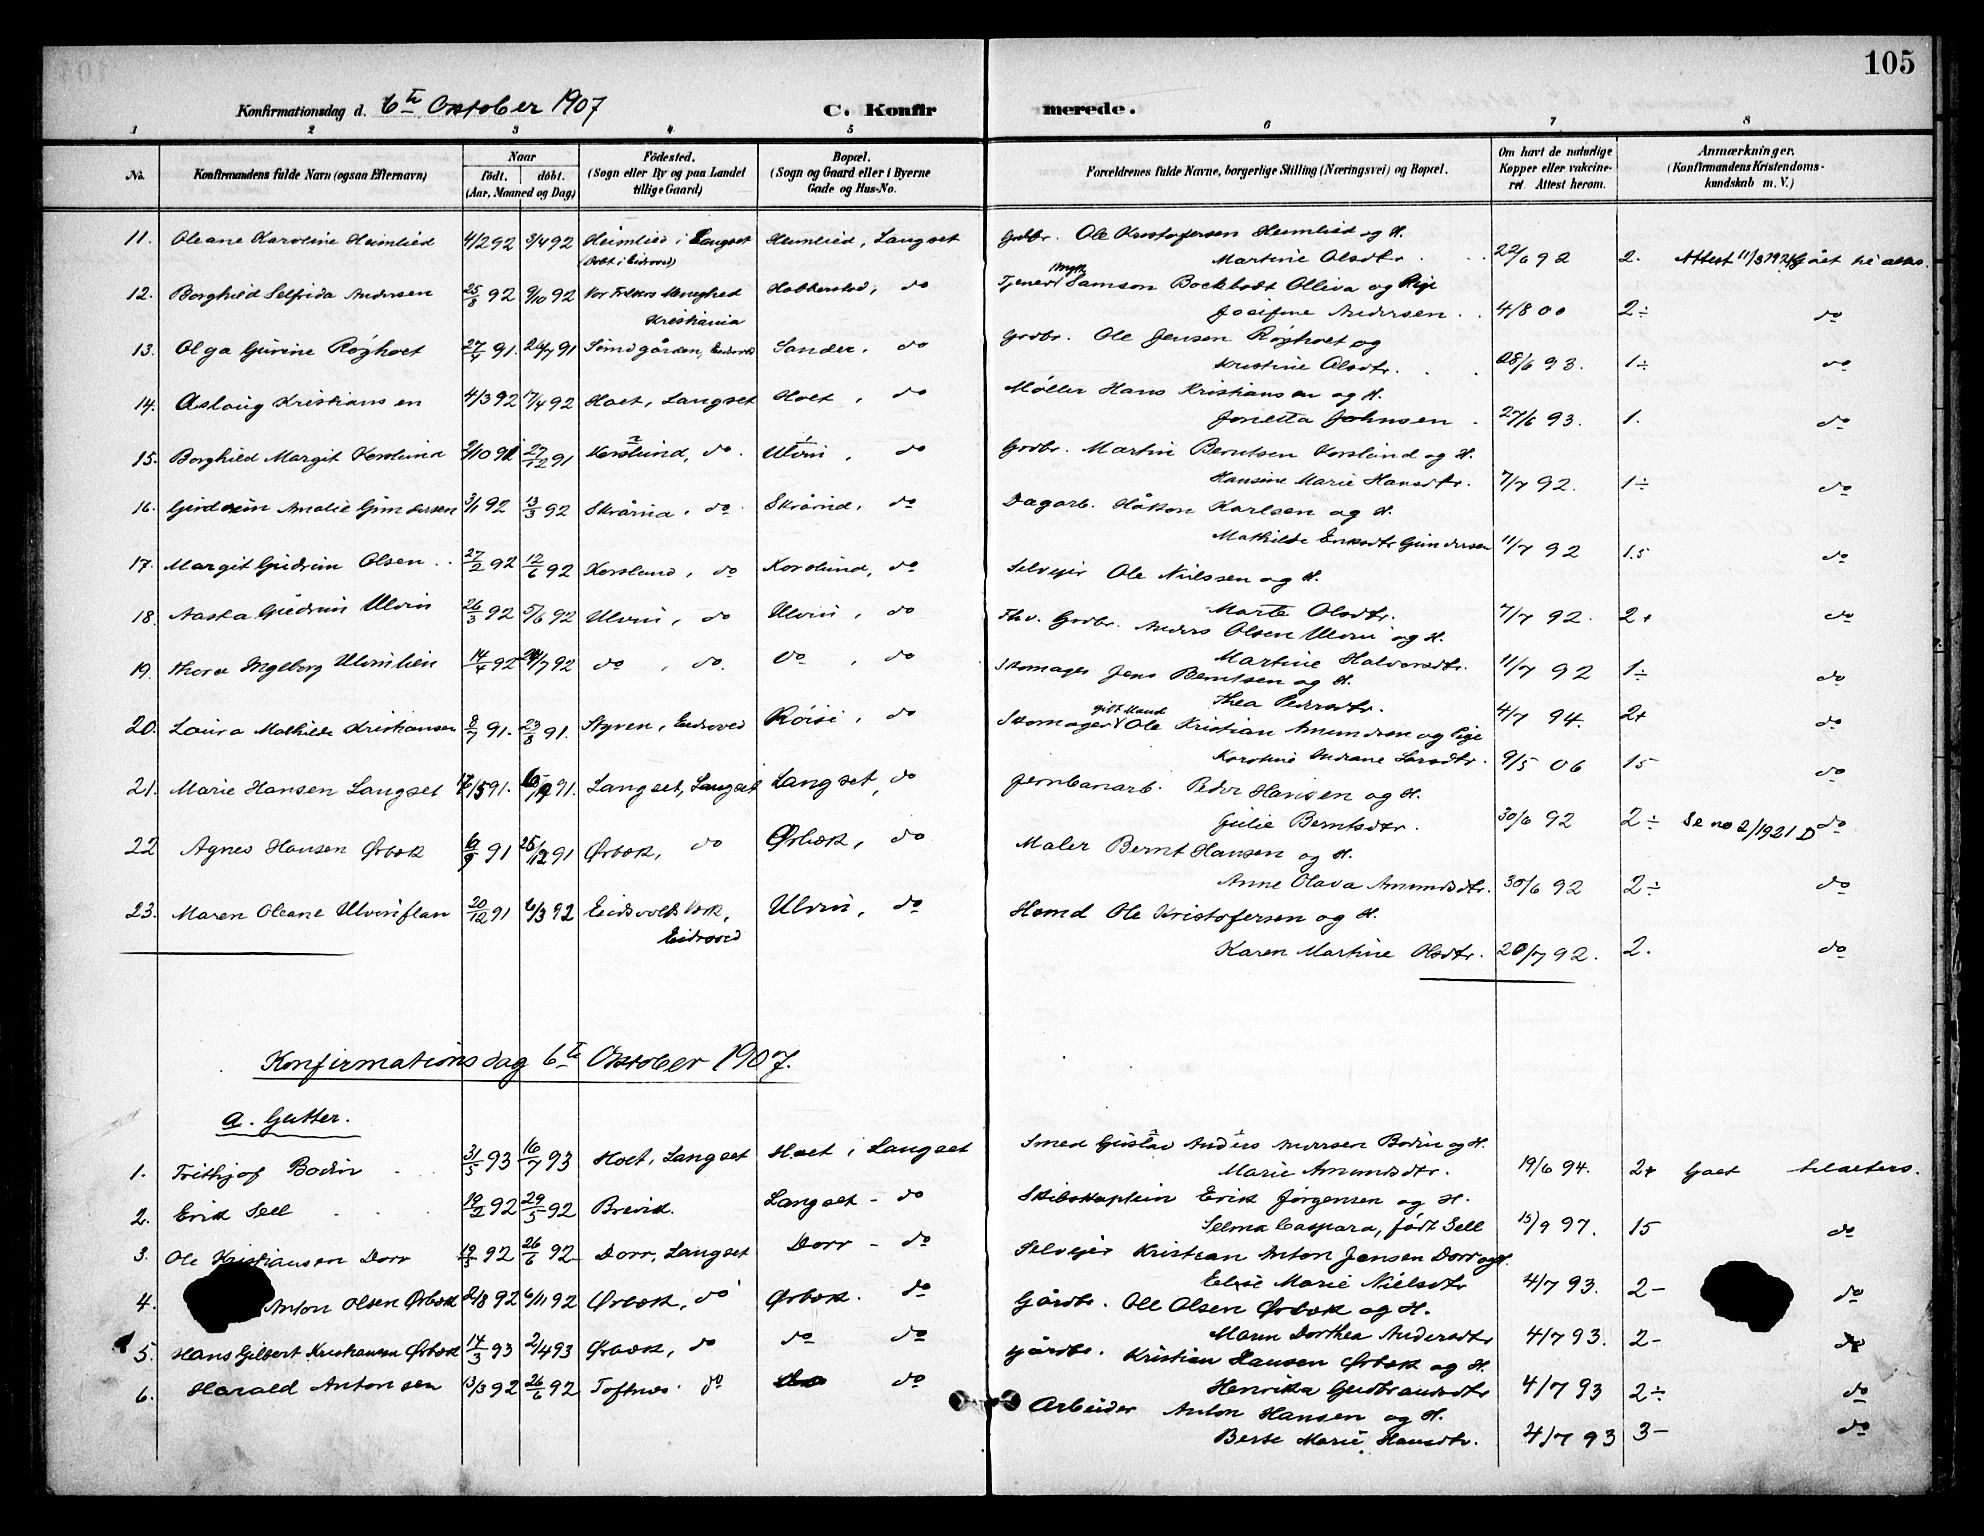 105
Konfirmationsdag d. 6te Oktober 1907 C. Konfirmerede.
1 2 3 4 5 6 7 8
No. Konfirmandens fulde Navn (ogsaa Efternavn) Naar født. døbt. (Aar, Maaned og Dag) Fødested. (Sogn eller By og paa Landet tillige Gaard) Bopæl. (Sogn og Gaard eller i Byerne Gade og Hus-No. Forældrenes fulde Navne, borgerlige Stilling (Næringsvei) og Bopæl. Om havt de naturlige Kopper eller vakcineret. Attest herom. Anmærkninger. (Konfirmandens Kristendomskundskab m. V.)
11. Oleane Karoline Heimlied 4/2 92 3/4 92 Heimlied i Langset (Døbt i Eidsvold) Heimlied, Langset Grdbr. Ole Kristofersen Heimlied og H.
Martine Olsdtr. 22/6 92 2. Attest 11/3 1921 Gået til alters.
12. Borghild Selfrida Andersen 25/8 92 9/10 92 Vor Frelsers Menighed Kristiania Habberstad, do Tjener Samson Bockbodt Olliva og Pige
Josefine Andersen 4/8 00 2÷ do
13. Olga Gurine Røghoet 27/4 91. 26/7 91 Sundgården, Eidsvold Sander, do Grdbr. Ole Jensen Røghoet og
Kristine Olsdtr. 28/6 93. 1÷ do
14. Aslaug Kristiansen 4/3 92 17/4 92 Hoet, Langset Hoet, do Møller Hans Kristiansen og H.
Jonetta Johnsen. 27/6 93. 1. do
15. Borghild Margit Korslund 9/10 91 27/12 91 Korslund, do Ulvin, do Grdbr. Martin Berntsen Korslund og H.
Hansine Marie Hansdtr. 7/7 92. 1÷ do
16. Gudrun Amalie Gundersen 3/1 92 13/3 92 Skårud, do Skårud, do Dagarb. Håkon Karlsen og H.
Mathilde Eriksdtr Gundersen 11/7 92 1.5 do
17. Margit Gudrun Olsen 27/2 92 12/6 92 Korslund, do Korslund, do Selveier Ole Nielssen og H.
Marte Olsdtr. 7/7 92. 2+ do
18. Aasta Gudrun Ulvin 26/3 92 5/6 92 Ulvin, do Ulvin, do Fhv. Grdbr. Anders Olsen Ulvin og H.
Martine Halvorsdtr. 11/7 92 1÷ do
19. Thora Ingeborg Ulvinlien 14/4 92 24/7 92 do, do. do, do Skomager Jens Berntsen og H.
Thea Pedersdtr. 4/7 94. 2+ do
20. Laura Mathilde Kristiansen 8/7 91. 23/8 91. Styren, Eidsvold Røisi, do Skomager gift Mand Ole Kristian Amundsen og Pige
Karoline Andrane Larsdtr. 9/5 06 15 do
21. Marie Hansen Langset 17/5 91. 6/9 91. Langset, Langset Langset, do Jernbanarb. Peder Hansen og H.
Julie Berntsdtr. 30/6 92 2÷ Se no 2/1921 D do
22 Agnes Hansen Ørbæk 6/9 91 25/12 91 Ørbæk, do Ørbæk, do Maler Bernt Hansen og H.
Anne Olava Amundsdtr. 30/6 92 2÷ do
23. Maren Oleane Ulvinflan 20/12 91 6/3 92 Eidsvolds Værk, Eidsvold Ulvin, do Ole Kristofersen og H.
Karen Martine Olsdtr. 20/7 92. 2. do
Konfirmationsdag 6te Oktober 1907.
a. Gutter.
1. Frithjof Bodin 31/5 93 16/7 93 Hoet, Langset Hoet i Langset Smed Gustav Anders Andersen Bodin og H.
Marie Amundsdtr. 19/6 94. 2+ Gaet til alters.
2. Erik Sell 19/2 92 29/5 92 Brevik. Langset - do Skibskaptein Erik Jørgensen og H.
Selma Caspara, født Sell 15/9 97. 15 do
3. Ole Kristiansen Dorr 19/5 92 26/6 92 Dorr, Langset Dorr - do Selveier Kristian Anton Jensen Dorr og H.
Eelise Marie Nielsdtr 4/7 93. 2- do
4. Anton Olsen Ørbæk 21/8 92 6/11 92 Ørbæk, do Ørbæk. do Gårdbr. Ole Olsen Ørbæk og H.
Maren Dorthea Andersdtr 4/7 93. 2- do
5. Hans Gilbert Kristiansen Ørbæk 14/3 93 2/4 93 Ørbæk, do do do Gårdbr. Kristian Hansen Ørbæk og H.
Henrikka Gudbrandsdtr 4/7 93 2÷ do
6. Harald Antonsen 13/3 92 26/6 92 Toftnes. do do Arbeider Anton Hansen og H.
Berte Marie Hansdtr. 4/7 93 3- do